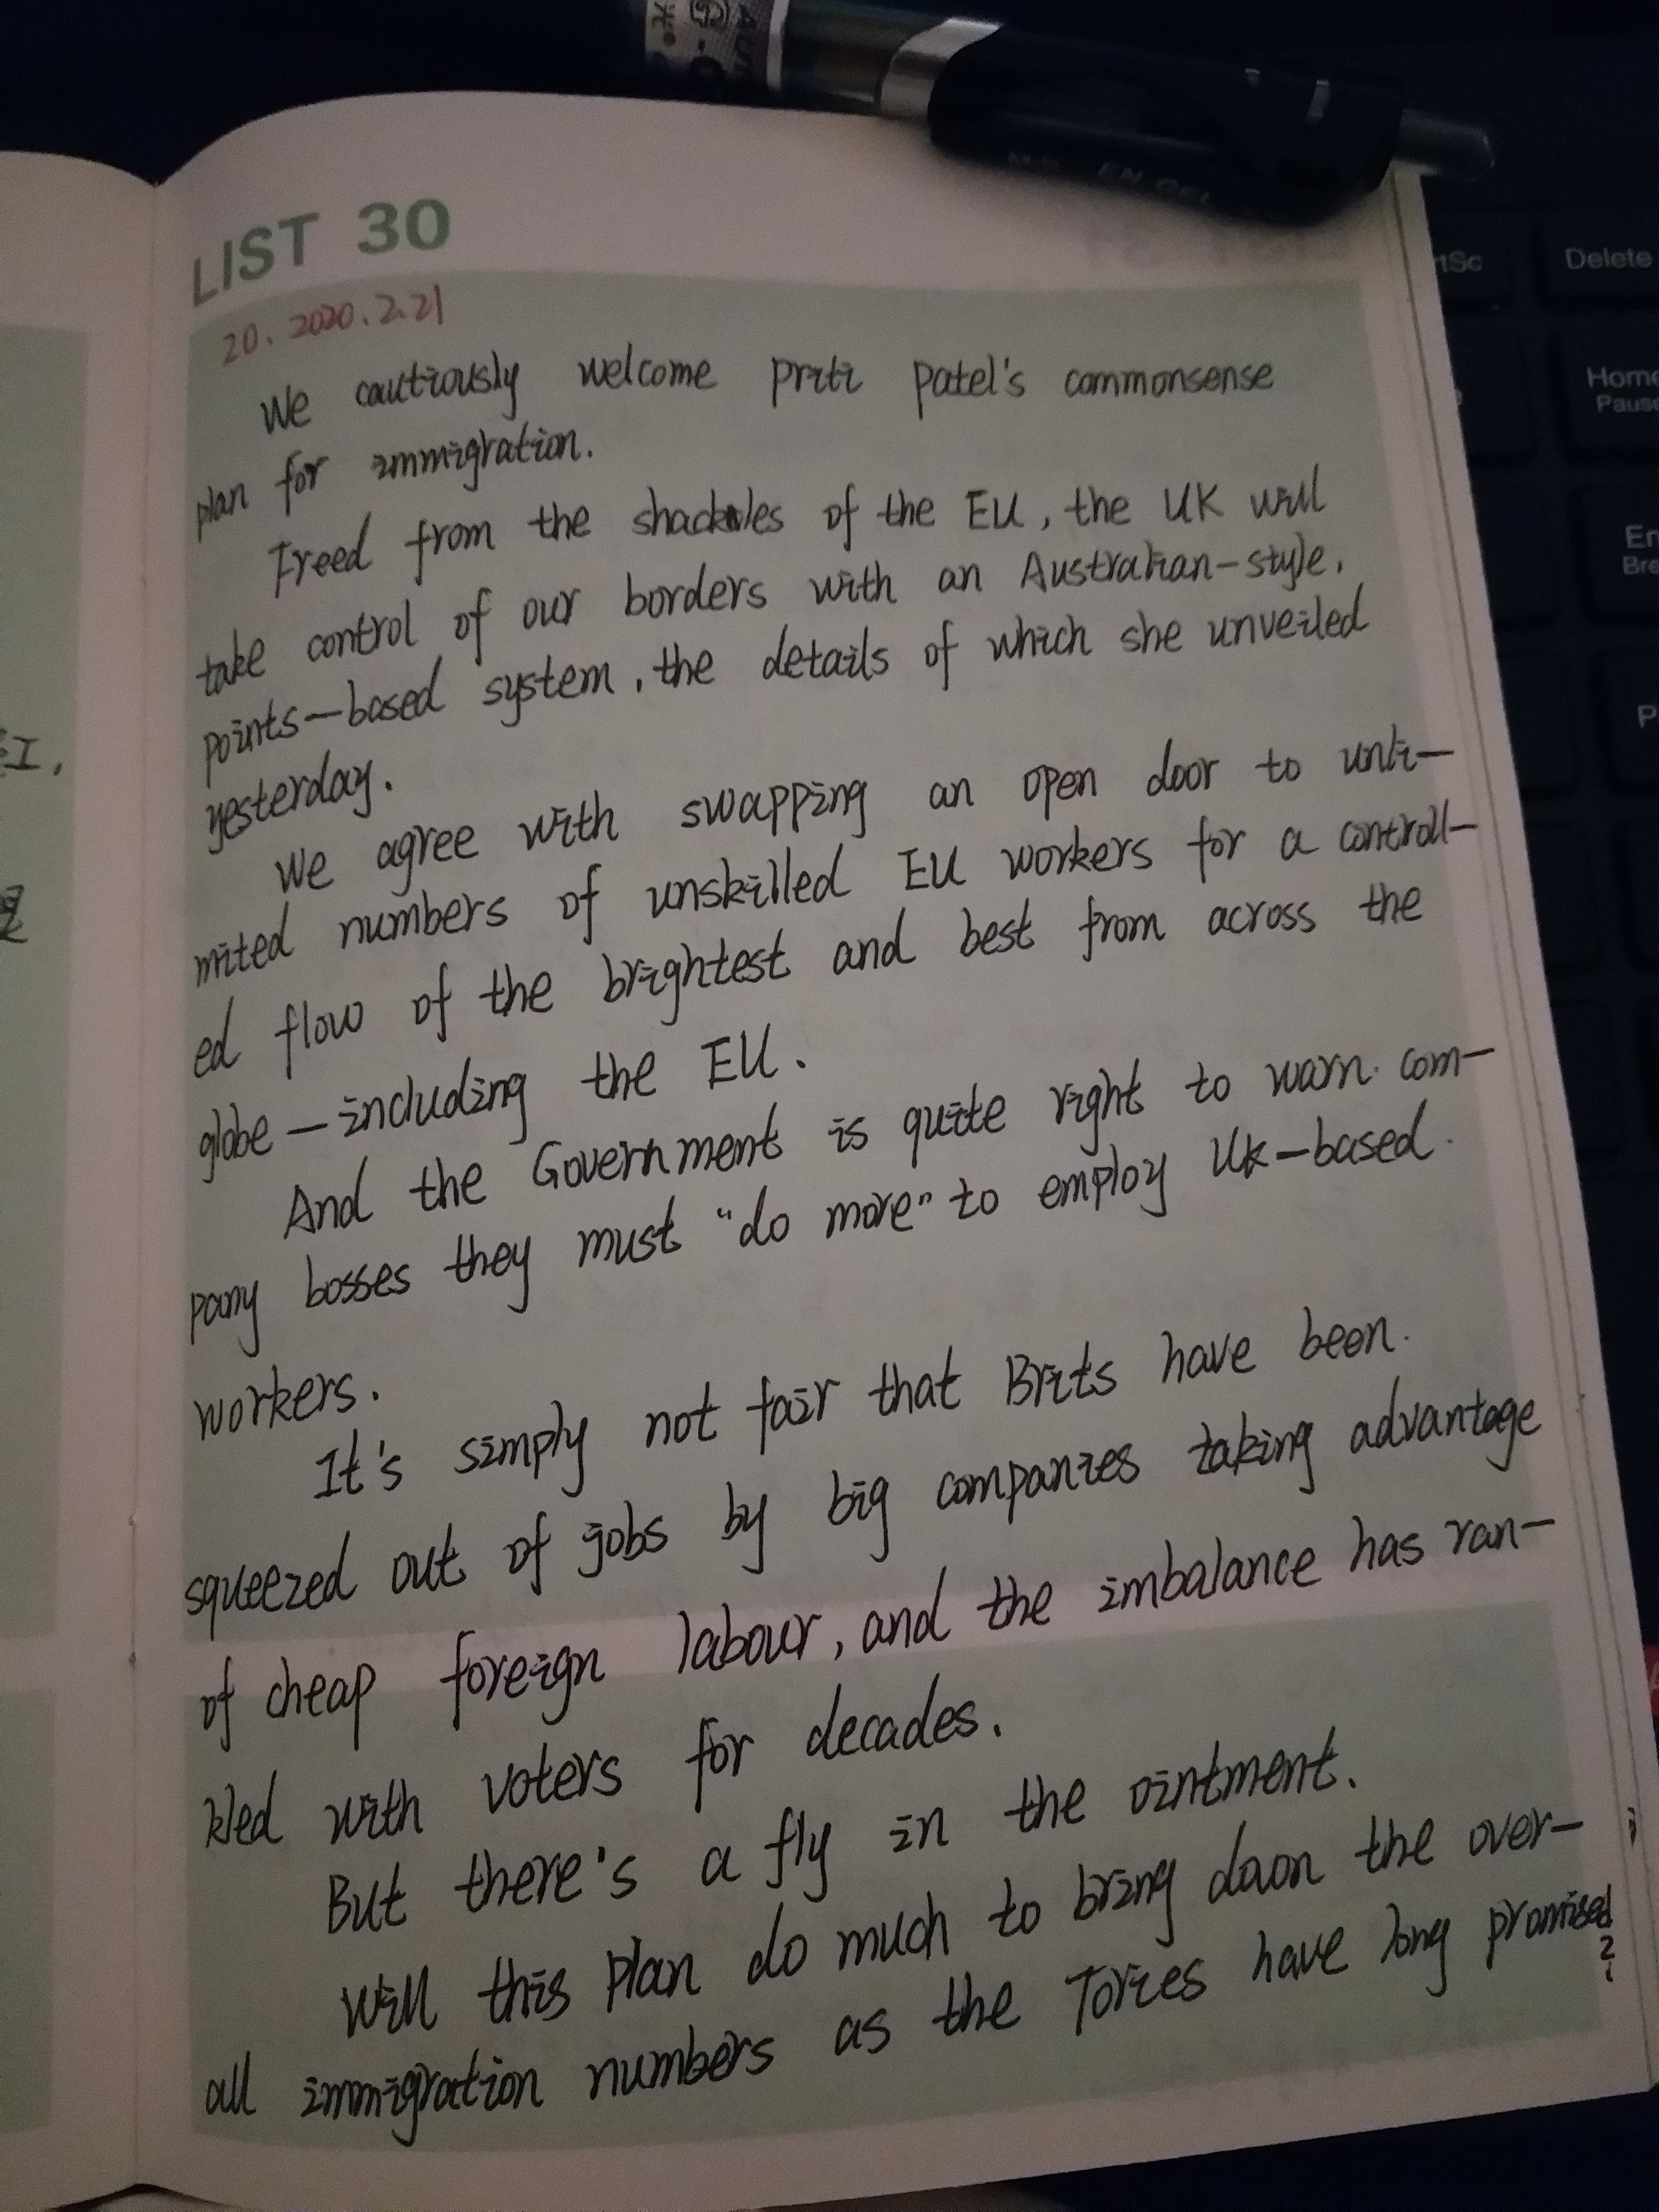 LIST 30
20. 2020.2.21
We cautiously welcome Priti Patel's commonsense
plan for immigration.
Freed from the shackles of the EU, the UK will
take control of our borders with an Australian-style,
points-based system, the details of which she unveiled
yesterday.
We agree with swapping an open door to unli-
mited numbers of unskilled EU workers for a controll-
ed flow of the brightest and best from across the
globe—including the EU.
And the Government is quite right to warn com-
pany bosses they must "do more" to employ UK-based
workers.
It's simply not fair that Brits have been
squeezed out of jobs by big companies taking advantage
of cheap foreign labour, and the imbalance has ran-
kled with voters for decades.
But there's a fly in the ointment.
Will this plan do much to bring down the over-
all immigration numbers as the Tories have long promised
?
Delete
Home